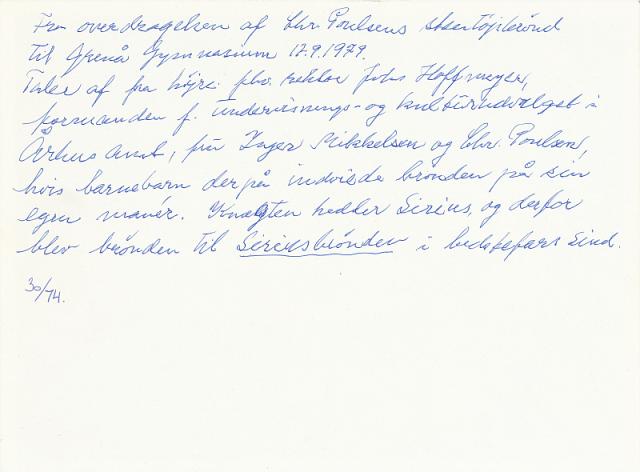 Fra overdragelsen af Chr. Poulsens stentøjsbrønd
til Grenå Gymnasium 12.9.1979.
Taler af fra højre: fhv. rektor Johs Hoffmeyer,
formanden f. undervisnings- og kulturudvalget i
Århus Amt, fru Inger Mikkelsen og Chr. Poulsen,
hvis barnebarn derpå indviede brønden på sin
egen manér. Knægten hedder Sirius, og derfor
blev brønden til Siriusbrønden i bedstefars sind.
30/74.